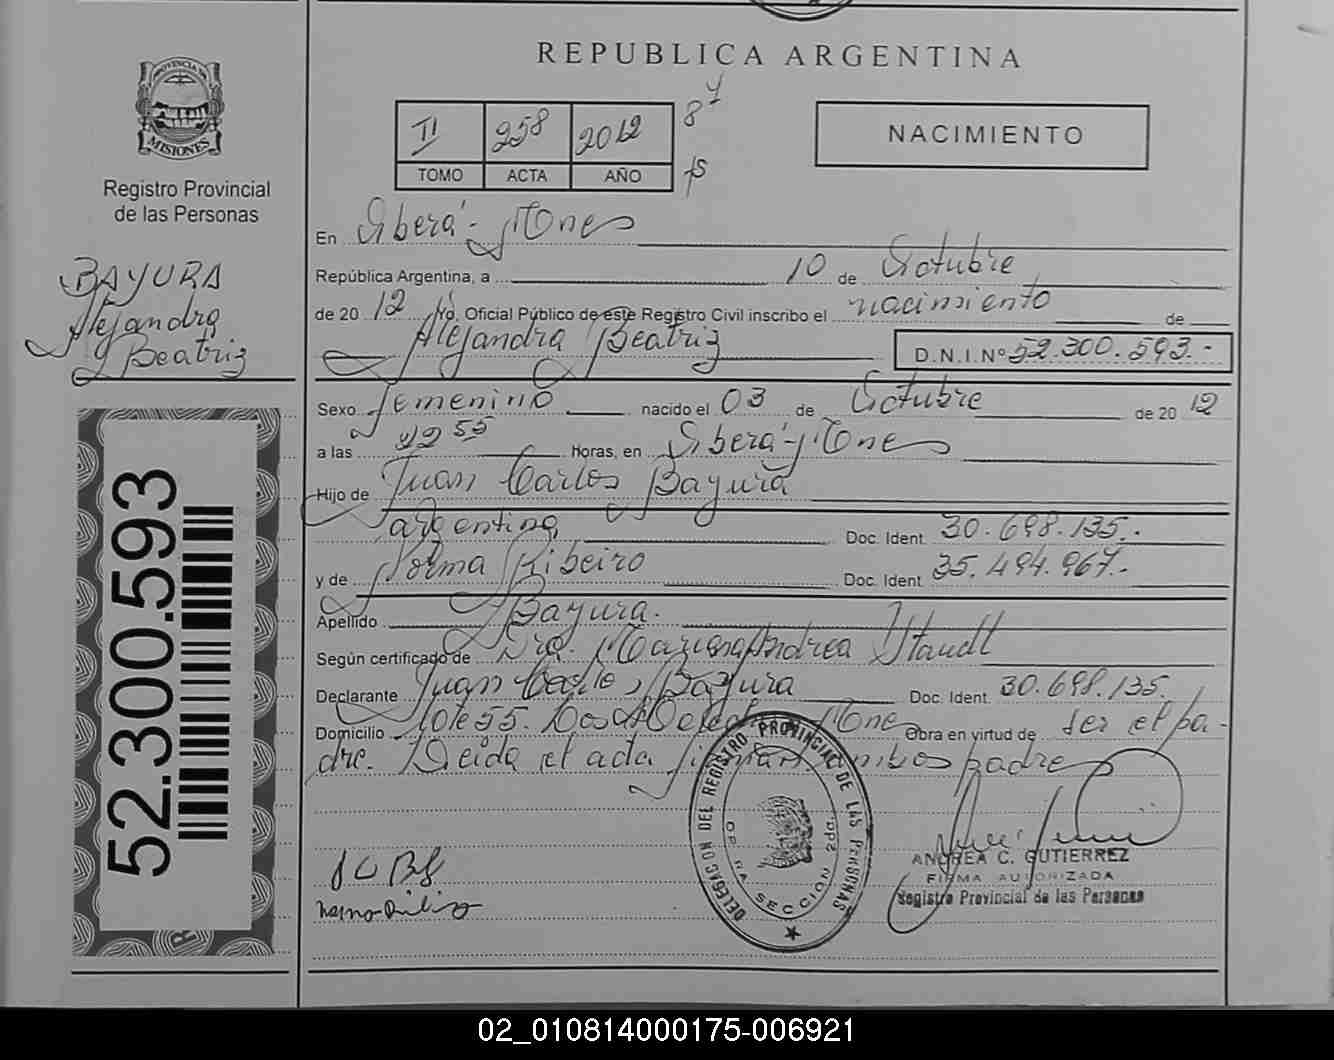 REPUBLICA ARGENTINA
PROVINCIA DE
MISIONES
Registro Provincial
de las Personas
BAYURA
Alejandra
Beatriz
52.300.593
II 258 2012
TOMO ACTA AÑO
NACIMIENTO
En Oberá - Mnes
República Argentina, a 10 de Octubre
de 20 12 Yo, Oficial Público de este Registro Civil inscribo el nacimiento de
Alejandra Beatriz D.N.I.Nº 52.300.593.-
Sexo Femenino nacido el 03 de Octubre de 20 12
a las 55 Horas, en Oberá - Mnes
Hijo de Juan Carlos Bayura
argentina Doc. Ident. 30.698.135.-
y de Norma Ribeiro Doc. Ident. 35.494.967.-
Apellido Bayura.
Según certificado de Dra. Mariana Andrea Staudt
Declarante Juan Carlos Bayura Doc. Ident. 30.698.135.
Domicilio Lote 55. Dos de Mnes Obra en virtud de ser el pa-
dre. Leida el acta firman ambos padres
DELEGACION DEL REGISTRO PROVINCIAL DE LAS PERSONAS
OBERA SECCION 2da.
J C B
ANDREA C. GUTIERREZ
FIRMA AUTORIZADA
Registro Provincial de las Personas
02_010814000175-006921